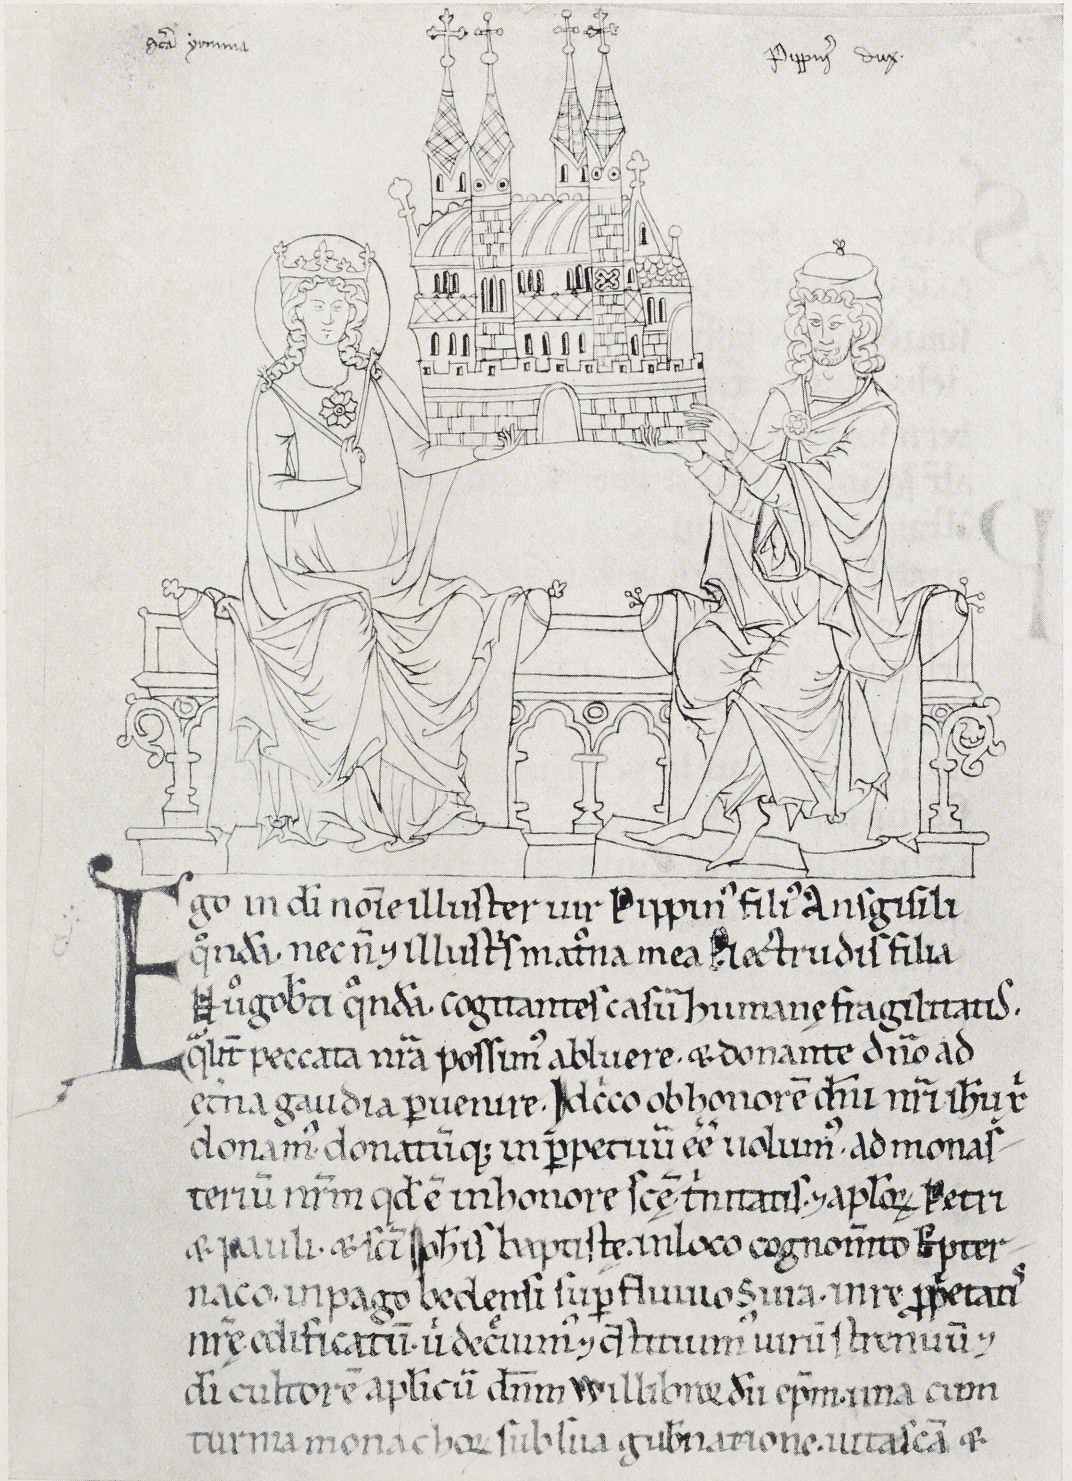 Sc̄a yrmina
Pippinꝰ dux.
Ego in dī noīe illuster uir Pippinꝰ filiꝰ Ansgisili
qͦnda. nec n̄ ⁊ illust̄s mat͛na mea Plectrudis filia
Hugob̄ti qͦnda. cogitantes casū humanę fragilitatis.
qͣlit̄ peccata nr̄a possimꝰ abluere. & donante dn̄o ad
et̄na gaudia ꝑuenire. Idcͥco ob honorē dn̄i nr̄i ihū xp̄i
donamꝰ donatūq; in ꝑpetuū eē uolumꝰ. ad monas-
teriū nr̄m qd̄ ē in honore scę̄ t̄nitatis. ⁊ aplōꝝ Petri
& pauli. & sc̄i Ioh̄is baptiste. in loco cognom̄to Epter-
naco. in pago bedensi suꝑ fluuio Suia. in re ꝓp̄etatis
nr̄ę edificatū. u̇ dec̄uimꝰ ⁊ c̄stituimꝰ uirū strenuū ⁊
dī cultorē aplīcū dn̄m Willibrordū ep̄m. una cum
turma monachoꝝ sub sua gub̄natione. uita sc̄ā &